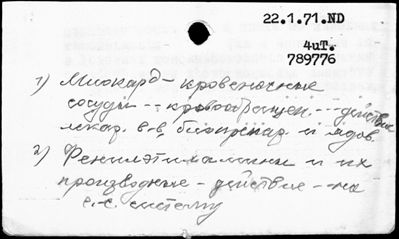 22.1.71.ND
4uT.
789776
1) Миокард - кровеносные
сосуды - - кровообращен. - - действие
лекар. в-в, биопрепар. и ядов.
2) Фенилэтиламины и их
производные - действие - на
с.-с. систему